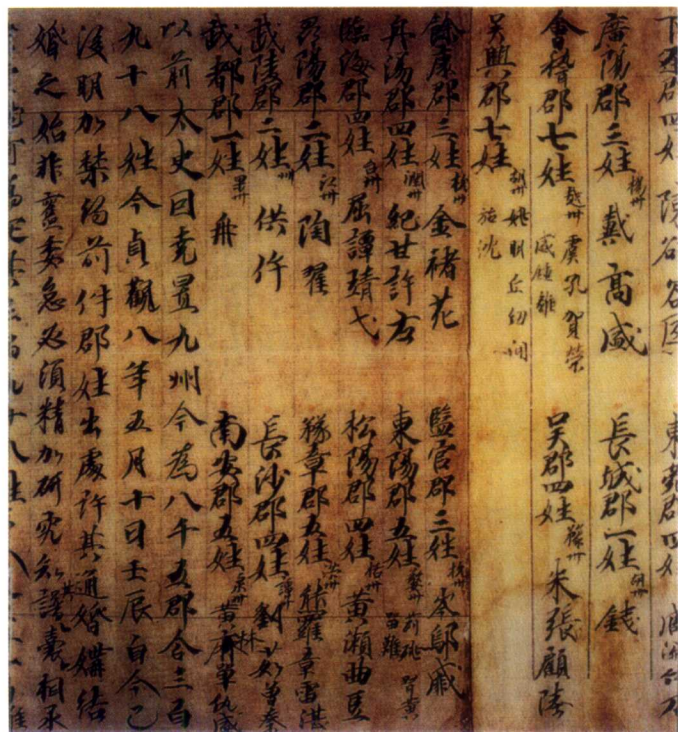 下邳郡四姓 東莞郡四姓
廣陽郡三姓 楊州 戴高盛 長城郡一姓 胡州 錢
會稽郡七姓 越州 虞孔賀榮盛鍾離 吳郡四姓 蘇州 朱張顧陸
吳興郡七姓 胡州 姚明丘紐聞施沈
餘康郡三姓 杭州 金褚花 鹽官郡三姓 杭州 岑鄔戚
丹陽郡四姓 潤州 紀甘許左 東陽郡五姓 婺州 姚習黃留難
臨海郡四姓 台州 屈譚靖弋 松陽郡四姓 括州 黃瀨曲豆
尋陽郡二姓 江州 陶翟 豫章郡五姓 洪州 熊羅章雷湛
武陵郡二姓 供仵 長沙郡四姓 潭州 劉茹曾秦
武都郡一姓 冉 南安郡五姓 泉州 黃林單仇盛
以前太史因堯置九州今為八千五郡合三百
九十八姓今貞觀八年五月十日壬辰自今已
後明加禁約前件郡姓出處許其通婚媾結
婚之始非舊委怠必須精加研究知其譜囊相承